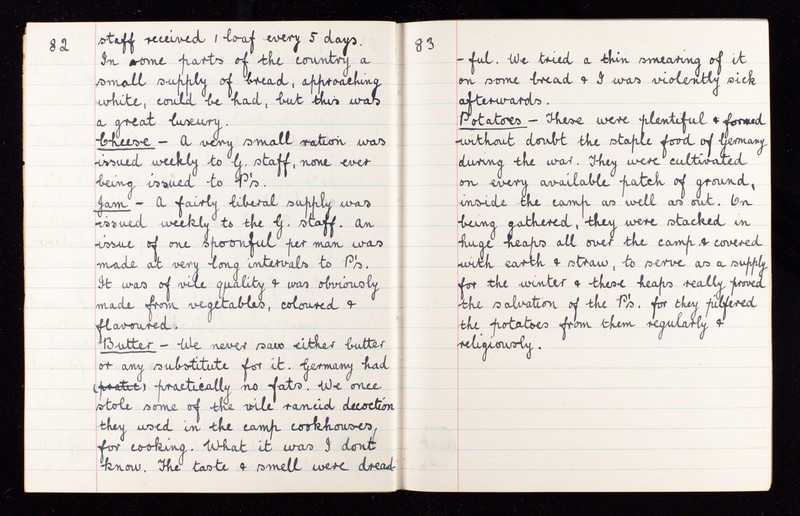 82
staff received 1 loaf every 5 days.
In some parts of the country a
small supply of bread, approaching
white, could be had, but this was
a great luxury.
Cheese - A very small ration was
issued weekly to G. staff, none ever
being issued to P's.
Jam - A fairly liberal supply was
issued weekly to the G. staff. An
issue of one spoonful per man was
made at very long intervals to P's.
It was of vile quality & was obviously
made from vegetables, coloured &
flavoured.
Butter - We never saw either butter
or any substitute for it. Germany had
practically no fats. We once
stole some of the vile rancid decoction
they used in the camp cookhouses,
for cooking. What it was I dont
know. The taste & smell were dread-
83
-ful. We tried a thin smearing of it
on some bread & I was violently sick
afterwards.
Potatoes - These were plentiful & formed
without doubt the staple food of Germany
during the war. They were cultivated
on every available patch of ground,
inside the camp as well as out. On
being gathered, they were stacked in
huge heaps all over the camp & covered
with earth & straw, to serve as a supply
for the winter & these heaps really proved
the salvation of the P's. for they pilfered
the potatoes from them regularly &
religiously.